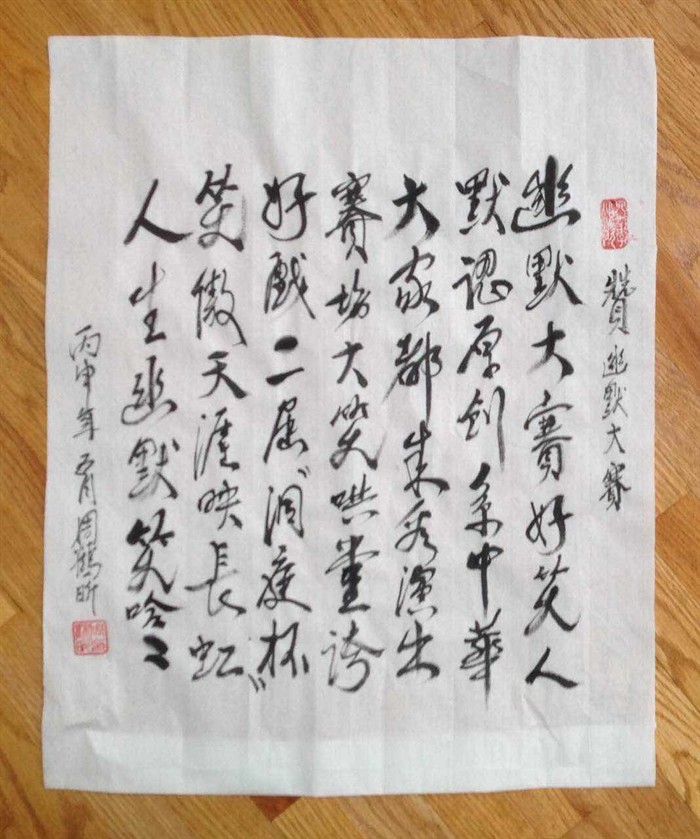 贊幽默大賽
幽默大賽好笑人
默認原创系中華
大家都来秀演出
賽場大笑哄堂誇
好戲二届“洞庭杯”
笑傲天涯映長虹
人生幽默笑哈〻
丙申年五月周鶴昕